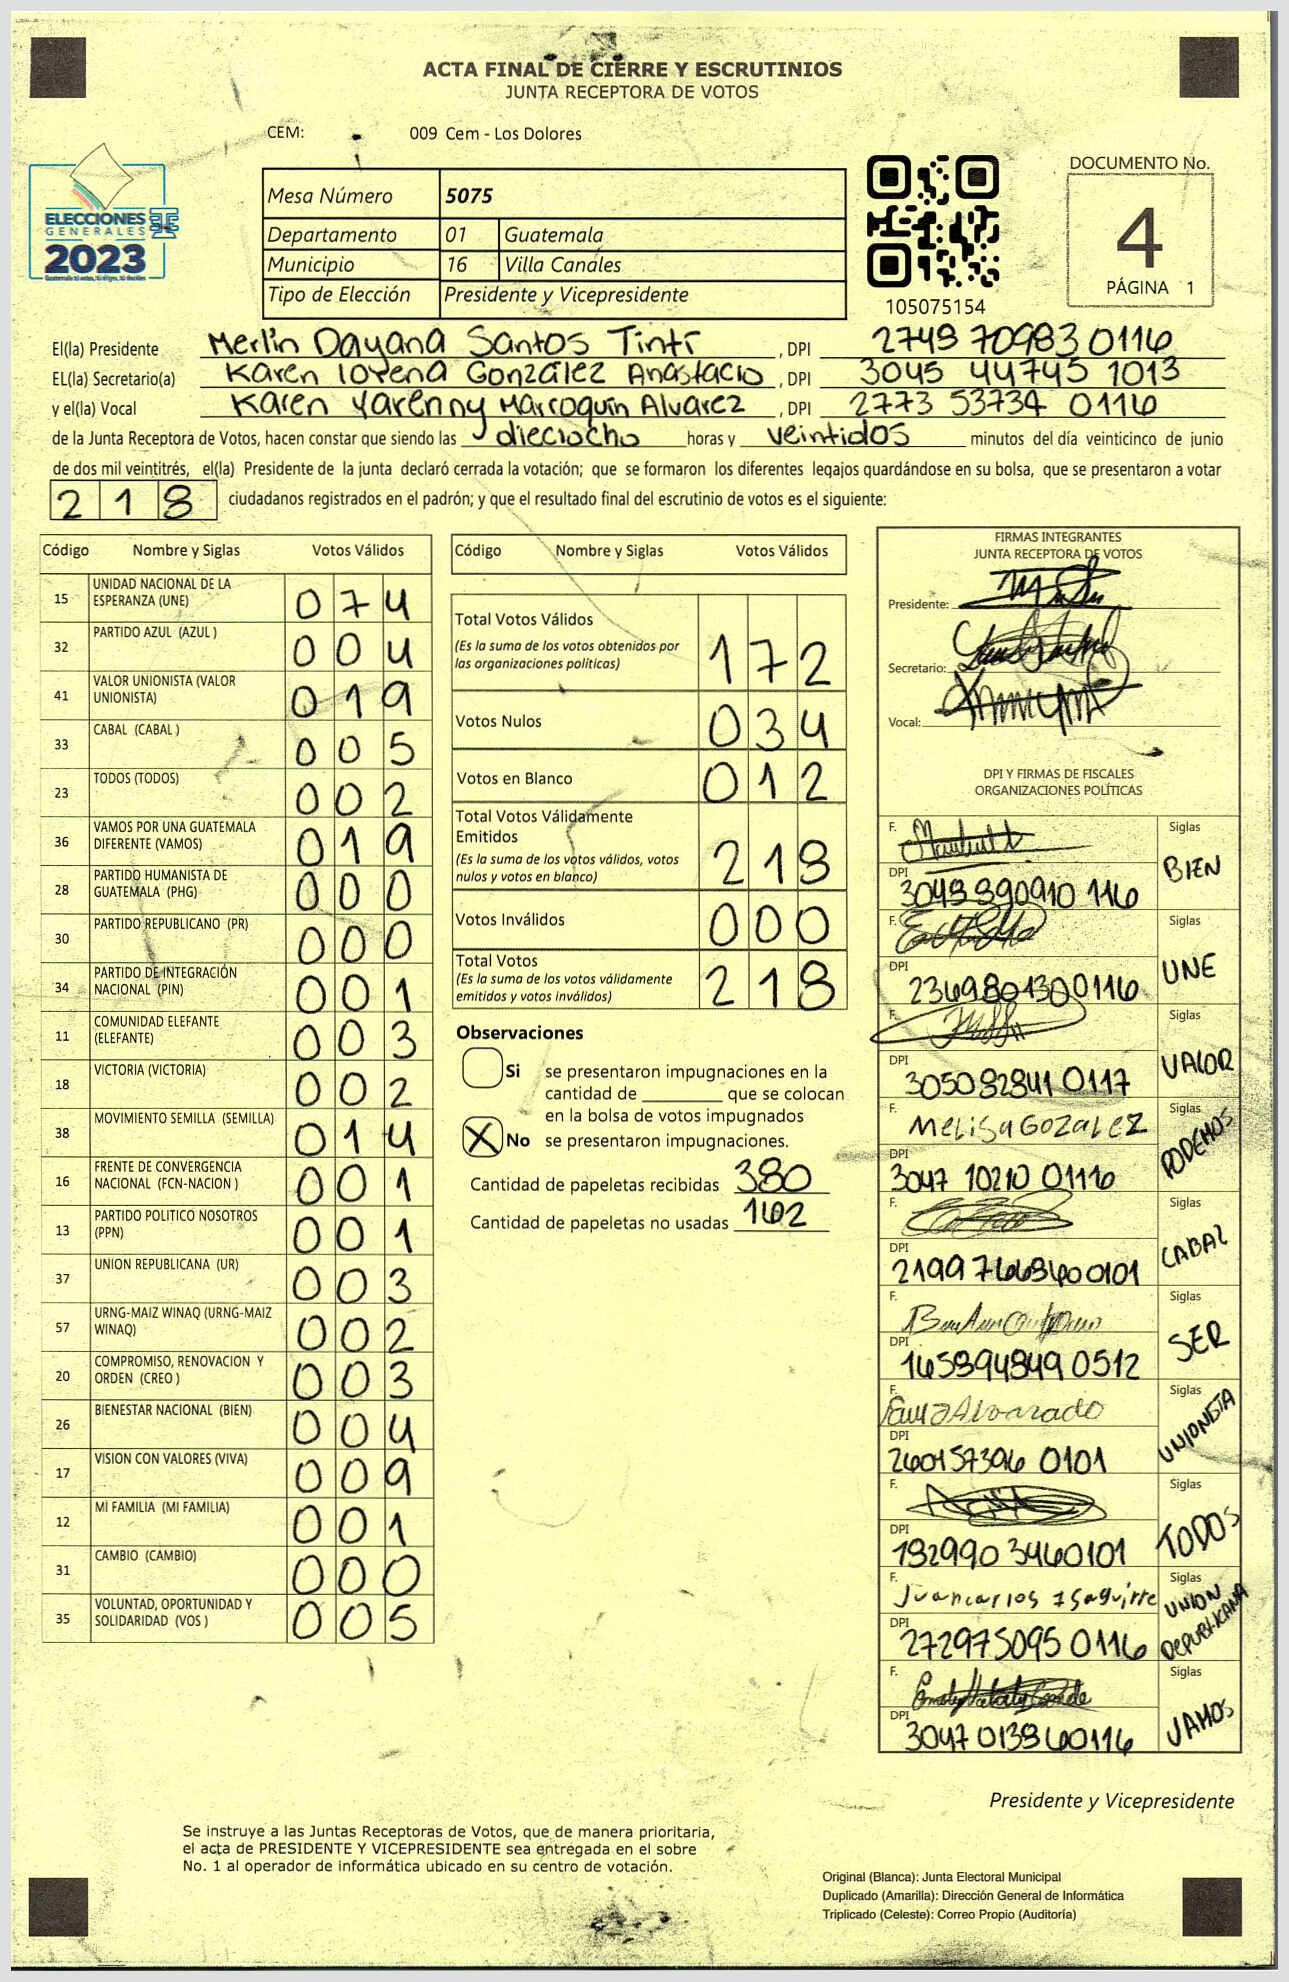 ACTA FINAL DE CIERRE Y ESCRUTINIOS
JUNTA RECEPTORA DE VOTOS
CEM: 009 Cem - Los Dolores
ELECCIONES
GENERALES
2023
Mesa Número 5075
Departamento 01 Guatemala
Municipio 16 Villa Canales
Tipo de Elección Presidente y Vicepresidente
105075154
DOCUMENTO No.
4
PÁGINA 1
El(la) Presidente Merlin Dayana Santos Tintí , DPI 2748 70983 0116
EL(la) Secretario(a) Karen lorena González Anastacio , DPI 3045 44745 1013
y el(la) Vocal Karen Yarenny Marroquín Alvarez , DPI 2773 53734 0116
de la Junta Receptora de Votos, hacen constar que siendo las dieciocho horas y veintidos minutos del día veinticinco de junio
de dos mil veintitrés, el(la) Presidente de la junta declaró cerrada la votación; que se formaron los diferentes legajos guardándose en su bolsa, que se presentaron a votar
218 ciudadanos registrados en el padrón; y que el resultado final del escrutinio de votos es el siguiente:
Código Nombre y Siglas Votos Válidos
15 UNIDAD NACIONAL DE LA ESPERANZA (UNE) 074
32 PARTIDO AZUL (AZUL ) 004
41 VALOR UNIONISTA (VALOR UNIONISTA) 019
33 CABAL (CABAL ) 005
23 TODOS (TODOS) 002
36 VAMOS POR UNA GUATEMALA DIFERENTE (VAMOS) 019
28 PARTIDO HUMANISTA DE GUATEMALA (PHG) 000
30 PARTIDO REPUBLICANO (PR) 000
34 PARTIDO DE INTEGRACIÓN NACIONAL (PIN) 001
11 COMUNIDAD ELEFANTE (ELEFANTE) 003
18 VICTORIA (VICTORIA) 002
38 MOVIMIENTO SEMILLA (SEMILLA) 014
16 FRENTE DE CONVERGENCIA NACIONAL (FCN-NACION ) 001
13 PARTIDO POLITICO NOSOTROS (PPN) 001
37 UNION REPUBLICANA (UR) 003
57 URNG-MAIZ WINAQ (URNG-MAIZ WINAQ) 002
20 COMPROMISO, RENOVACION Y ORDEN (CREO ) 003
26 BIENESTAR NACIONAL (BIEN) 004
17 VISION CON VALORES (VIVA) 009
12 MI FAMILIA (MI FAMILIA) 001
31 CAMBIO (CAMBIO) 000
35 VOLUNTAD, OPORTUNIDAD Y SOLIDARIDAD (VOS ) 005
Código Nombre y Siglas Votos Válidos
Total Votos Válidos 172
(Es la suma de los votos obtenidos por
las organizaciones políticas)
Votos Nulos 034
Votos en Blanco 012
Total Votos Válidamente
Emitidos 218
(Es la suma de los votos válidos, votos
nulos y votos en blanco)
Votos Inválidos 000
Total Votos 218
(Es la suma de los votos válidamente
emitidos y votos inválidos)
Observaciones
Si se presentaron impugnaciones en la
cantidad de ________ que se colocan
en la bolsa de votos impugnados
X No se presentaron impugnaciones.
Cantidad de papeletas recibidas 380
Cantidad de papeletas no usadas 162
FIRMAS INTEGRANTES
JUNTA RECEPTORA DE VOTOS
Presidente:
Secretario:
Vocal:
DPI Y FIRMAS DE FISCALES
ORGANIZACIONES POLÍTICAS
F. Siglas BIEN
DPI 3048 890910 116
F. Siglas UNE
DPI 2369801300116
F. Siglas VALOR
DPI 305082841 0117
F. Melisa Gozalez Siglas PODEMOS
DPI 3047 10210 01116
F. Siglas CABAL
DPI 2199 766360 0101
F. Siglas SER
DPI 165894849 0512
F. Alvarado Siglas UNIONISTA
DPI 260157396 0101
F. Siglas TODOS
DPI 182990 3460101
F. Juancarlos Isaguirre Siglas UNION REPUBLICANA
DPI 272975095 0116
F. Siglas VAMOS
DPI 3047 013860116
Presidente y Vicepresidente
Se instruye a las Juntas Receptoras de Votos, que de manera prioritaria,
el acta de PRESIDENTE Y VICEPRESIDENTE sea entregada en el sobre
No. 1 al operador de informática ubicado en su centro de votación.
Original (Blanca): Junta Electoral Municipal
Duplicado (Amarilla): Dirección General de Informática
Triplicado (Celeste): Correo Propio (Auditoría)